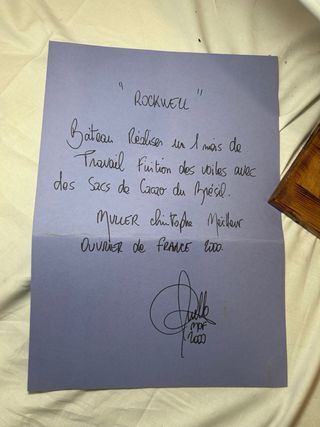 " ROCKWELL "
Bateau Réaliser en 1 mois de
Travail Finition des voiles avec
des Sacs de Cacao du Brésil.
MULLER Christophe Meilleur
OUVRIER de FRANCE 2000.
MOF
2000